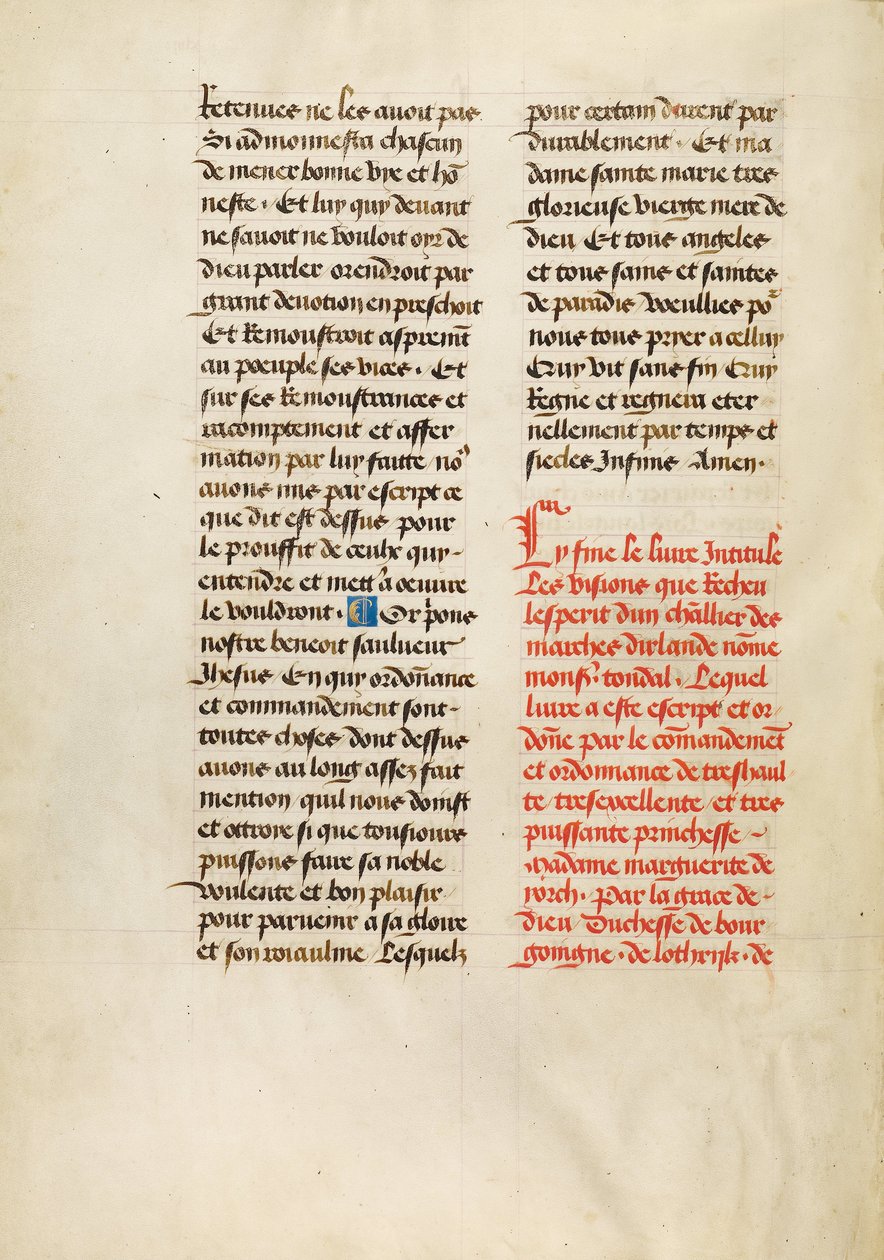 Retenues ne les auoit pas
Si admonnesta chascun
de mener bonne vye et hō
neste · Et luy quy deuant
ne sauoit ne vouloit oyr de
dieu parler / orendroit par
grant deuotion en preschoit
Et Remoustroit aspremt̄
au poeuple ses vices · Et
sur ses Remoustrances et
racomptement et affer
mation par luy faitte / no9
auons mis par escript ce
que dit est dessus / pour
le prouffit de ceulx quy-
entendre et mett' a oeuure
le vouldront · C Or p̄ons
nostre benoit saulueur
Jhesus / En quy ordōnance
et commandement sont-
toutes choses / dont dessus
auons au long assez fait
mention / quil nous doinst
et ottroie si que tousiours
puissons faire sa noble
voulente et bon plaisir /
pour paruenir a sa gloire
et son roiaulme / Lesquelz
pour certain durent par
durablement · Et ma
dame sainte marie tres
glorieuse vierge mere de
dieu / Et tous angeles
et tous sains et saintes
de paradis / voeullies po²
nous tous pryer a celluy
Quy vit sans fin / Quy
Regne et regnera eter
nellement par temps et
siecles Infinis / Amen ·
Cy fine le liure Intitule
Les visions que Recheu
lesperit dun chl̄lier des
marches dirlande nōme
monsr̄ · tondal · Lequel
liure a este escript et or-
dōne par le cōmandemēt
et ordonnance de treshaul
te / tresexcellente / et tres
puissante princhesse / ~
Madame marguerite de
yorch · Par la grace de-
dieu / Duchesse de bour
goingne · de lothrijk · de